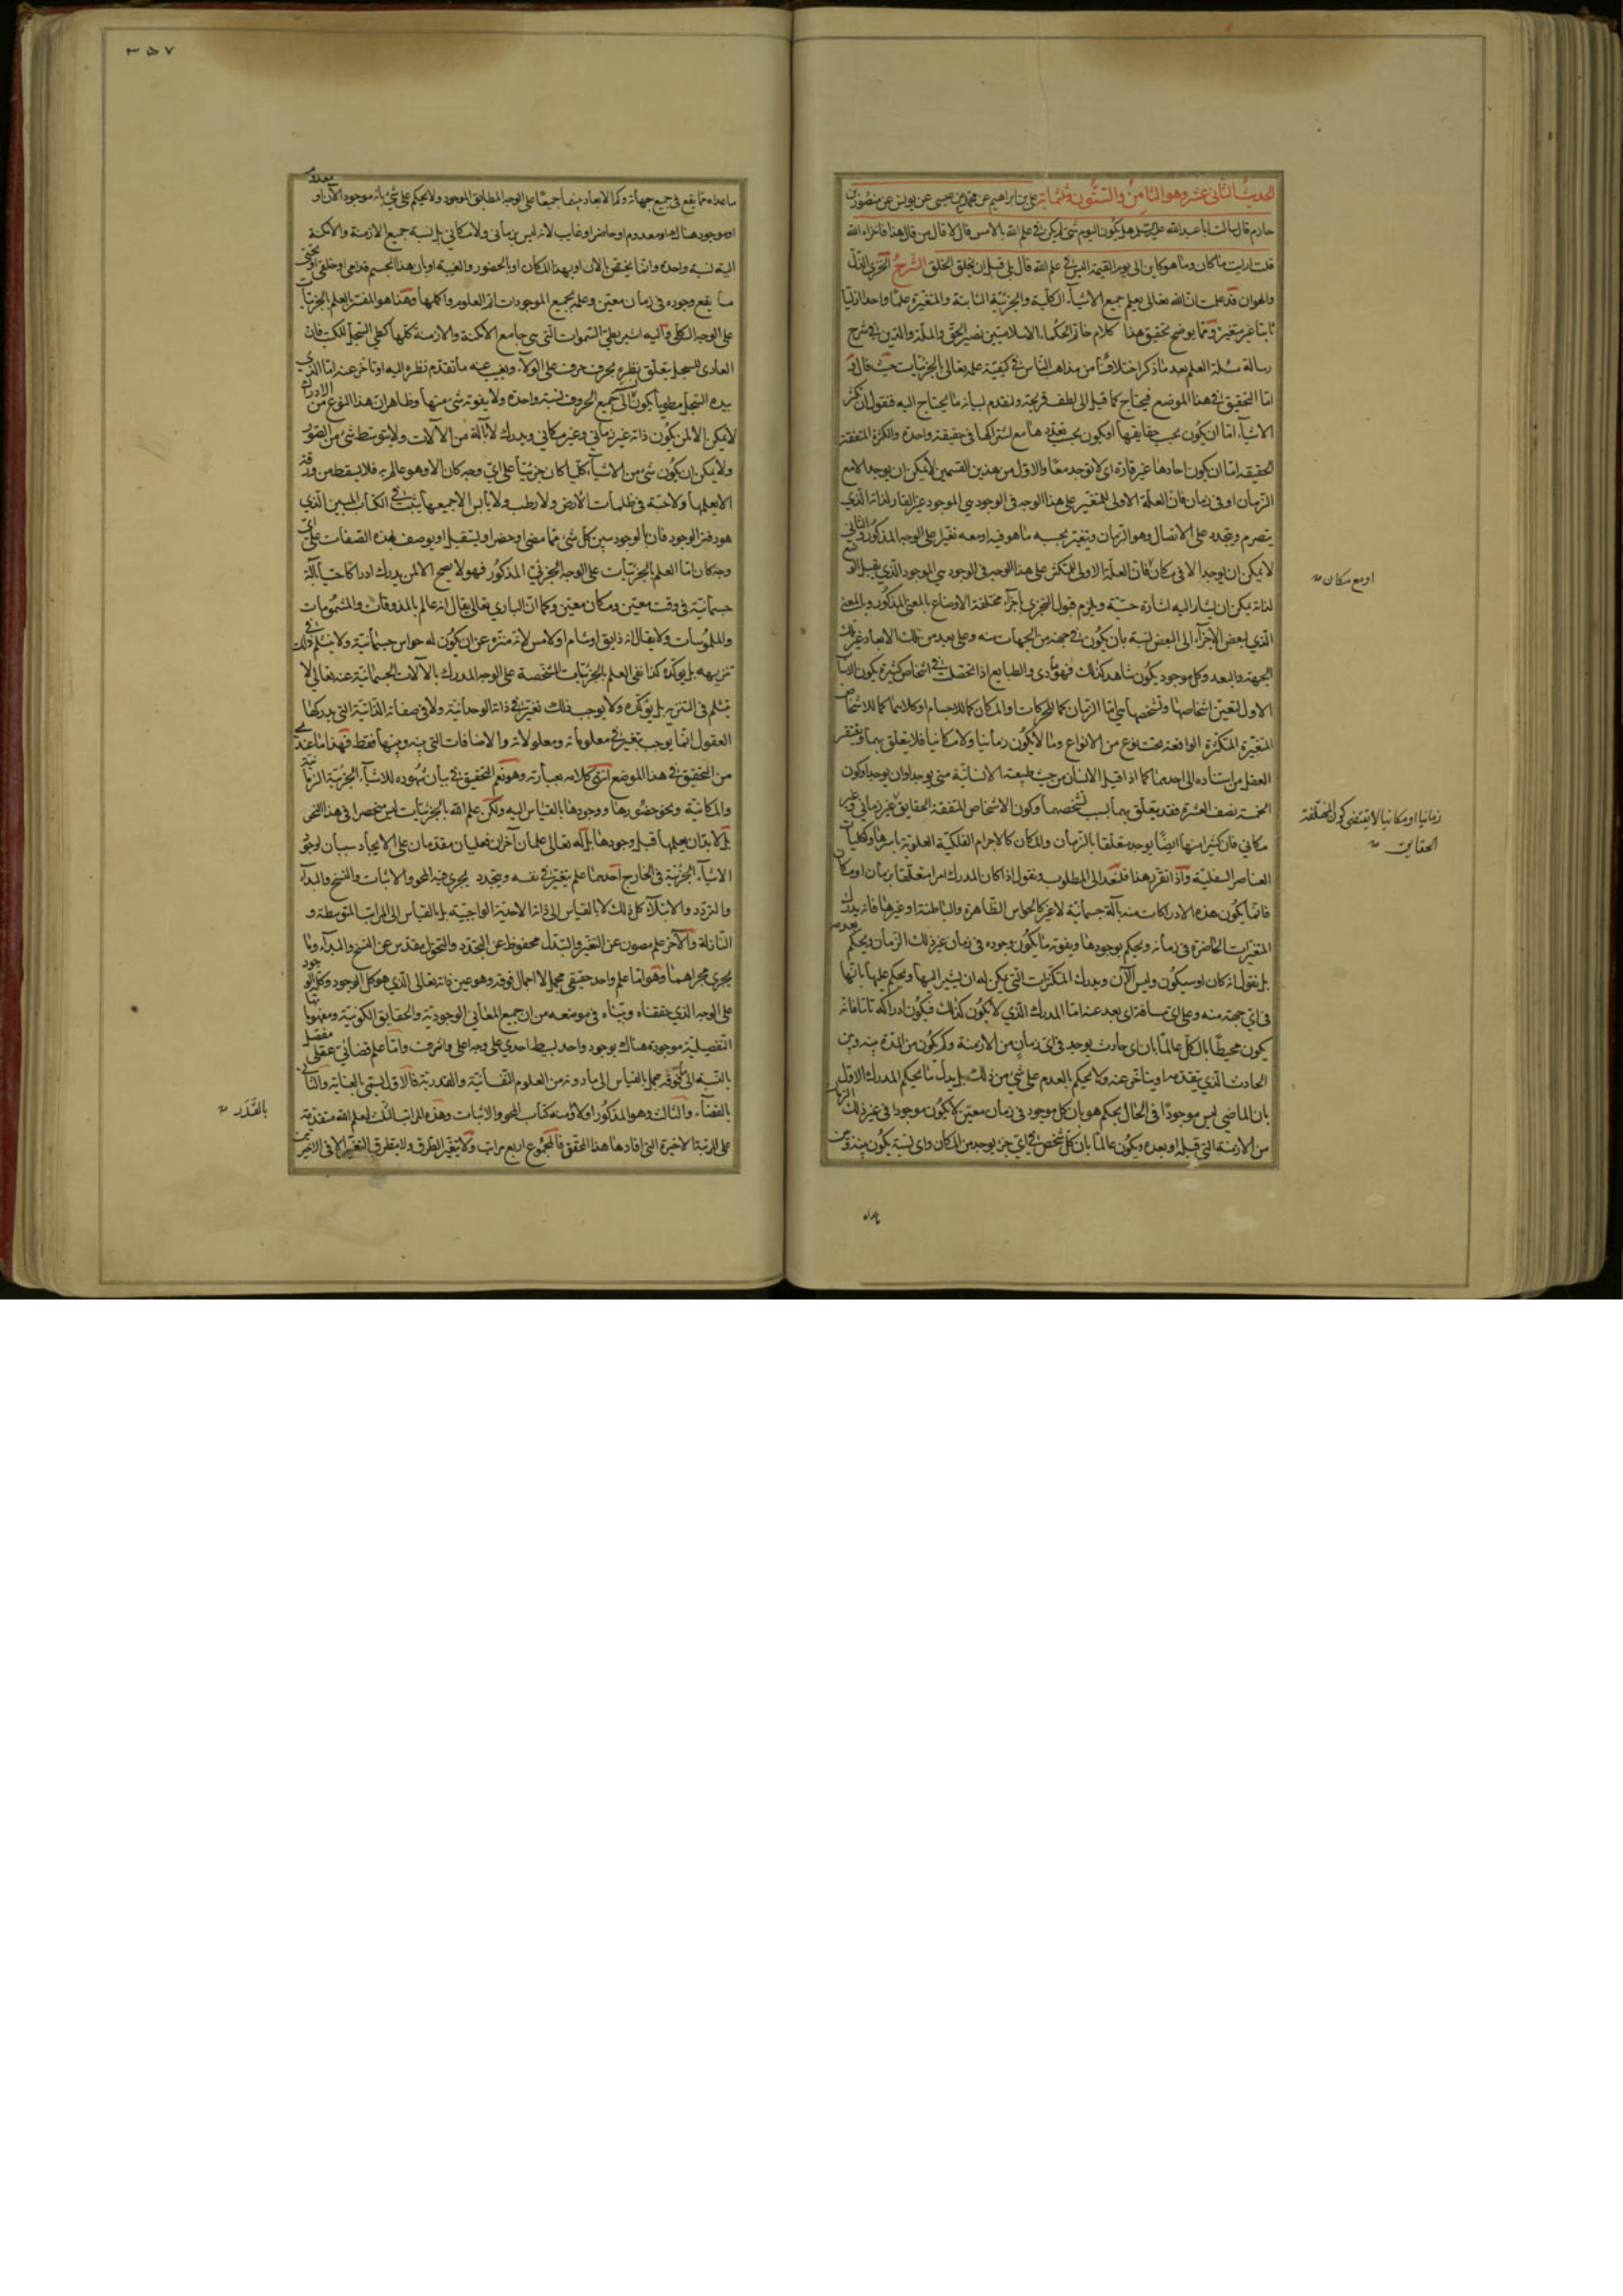 الحديث الثاني عشر وهو الثامن والستون وثلثمائة علي بن ابراهيم عن محمد بن عيسى عن يونس عن منصور بن
حازم قال سالت ابا عبد الله عليه السلم هل يكون اليوم شئ لم يكن في علم الله بالامس قال لا قال من قال هذا فاخزاه الله
قلت ارايت ما كان وما هو كاين الى يوم القيمة اليس في علم الله قال بلى قبل ان يخلق الخلق الشرح الخزي الذل
والهوان قد علمت ان الله تعالى يعلم جميع الاشياء الكلية والجزئية الثابتة والمتغيرة علما واحدا ازليا
ثابتا غير متغير ومما يوضح تحقيق هذا كلام خاتم الحكماء الاسلاميين نصير الحق والملة والدين في شرح
رسالة مسئلة العلم بعد ما ذكر اختلافا من مذاهب الناس في كيفية علمه تعالى بالجزئيات حيث قال
اما التحقيق في هذا الموضع فيحتاج كما قيل الى لطف قريحة ولنقدم لبيانه ما يحتاج اليه فنقول ان تكثر
الاشياء اما ان يكون بحسب حقايقها او يكون بحسب تعددها مع اشتراكها في حقيقة واحدة والكثرة المتفقة
الحقيقة اما ان يكون احادها غير قارة اى لا توجد معا والاول من هذين القسمين لا يمكن ان يوجد الا مع
الزمان او في زمان فان العلة الاولى للتغير على هذا الوجه في الوجود هي الموجود غير القار لذاته الذي
يتصرم ويتجدد على الاتصال وهو الزمان ويتغير بحسبه ما هو فيه او معه تغيرا على الوجه المذكور والثاني
لا يمكن ان يوجد الا في مكان فان العلة الاولى للتكثر على هذا الوجه في الوجود هي الموجود الذي يقبل الوضع
لذاته يمكن ان يشار اليه اشارة حسية ويلزم قبول التجزي باجزاء مختلفة الاوضاع بالمعنى المذكور وبالمعنى
الذي لبعض الاجزاء الى البعض نسبة بان يكون في جهة من الجهات منه وعلى بعد من تلك الابعاد غير تلك
الجهة والبعد وكل موجود يكون شانه كذلك فهو مادي والطبايع اذا تحصلت في اشخاص كثيرة يكون الاسباب
الاول لتعين اشخاصها وتشخصها هي اما الزمان كما للحركات والمكان كما للاجسام او كلاهما كما للاشخاص
المتغيرة المتكثرة الواقعة تحت نوع من الانواع وما لا يكون زمانيا ولا مكانيا فلا يتعلق بهما ويتنفر
العقل من استناده الى احدهما كما اذا قيل الانسان من حيث طبيعته الانسانية متى يوجد او اين يوجد او كون
الخمسة نصف العشرة وقد يتعلق بهما بسبب تشخصهما وكون الاشخاص المتفقة الحقايق غير زماني وغير
مكاني فان كثيرا منها ايضا يوجد متعلقا بالزمان والمكان كالاجرام الفلكية العلوية باسرها وكليات
العناصر السفلية واذا تقرر هذا فلنعد الى المطلوب ونقول اذا كان المدرك امرا متعلقا بزمان او مكان
فانما يكون هذه الادراكات منه بآلة جسمانية لا غير كالحواس الظاهرة والباطنة او غيرها فانه يدرك
المتغيرات الحاضرة في زمانه ويحكم بوجودها ويفوته ما يكون وجوده في زمان غير ذلك الزمان ويحكم بعدمه
بل يقول انه كان او سيكون وليس الآن ويدرك المتكثرات التي يمكن له ان يشير اليها ويحكم عليها بانها
في اي جهة منه وعلى اي مسافة ان بعد عنه اما المدرك الذي لا يكون كذلك فيكون ادراكه تاما فانه
يكون محيطا بالكل عالما بان اي حادث يوجد في اي زمان من الازمنة وكم يكون من المدة بينه وبين
الحادث الذي يتقدمه او يتاخر عنه ولا يحكم بالعدم على شئ من ذلك بل بدل ما يحكم المدرك الاول
بان الماضي ليس موجودا في الحال يحكم هو بان كل موجود في زمان معين لا يكون موجودا في غير ذلك الزمان
من الازمنة التي قبله او بعده ويكون عالما بان كل شخص في اي جزء يوجد من المكان واي نسبة يكون بينه وبين
او مع مكان
زمانيا او مكانيا لا يقتضى كون المختلفة
الحقايق
ماعداه
٣٥٧
ماعداه مما يقع في جميع جهاته وكم الابعاد بينهما جميعا على الوجه المطابق للوجود ولا يحكم على شئ بانه موجود الآن او معدوم
او موجود هناك او معدوم او حاضر او غايب لانه ليس بزماني ولا مكاني بل نسبة جميع الازمنة والامكنة
اليه نسبة واحدة وانما يختص بالآن او بهذا المكان او بالحضور والغيبة او بان هذا الجسم قدامي او خلفي او تحتي
ما يقع وجوده في زمان معين وعلمه بجميع الموجودات اتم العلوم واكملها وهذا هو المفسر بالعلم بالجزئيات
على الوجه الكلي واليه اشير بطي السموات التي هي جامع الامكنة والازمنة كلها كطي السجل للكتب فان
القارى للسجل يتعلق نظره بحرف حرف على الولاء ويغيب عنه ما تقدم نظره اليه او تاخر عنه اما الذي
بيده السجل مطويا يكون نسبته الى جميع الحروف نسبة واحدة ولا يفوته شئ منها وظاهر ان هذا النوع من الادراك
لا يمكن الا لمن يكون ذاته غير زماني وغير مكاني ويدرك لا بآلة من الآلات ولا بتوسط شئ من الصور
ولا يمكن ان يكون شئ من الاشياء كليا كان جزئيا على اي وجه كان الا وهو عالم به فلا يسقط من ورقة
الا يعلمها ولا حبة في ظلمات الارض ولا رطب ولا يابس الا جميعها يثبت في الكتاب المبين الذي
هو دفتر الوجود فان بالوجود يبين كل شئ مما مضى او حضر او يستقبل او يوصف بهذه الصفات على اي
وجه كان اما العلم بالجزئيات على الوجه الجزئي المذكور فهو لا يصح الا لمن يدرك ادراكا حسيا بآلة
جسمانية في وقت معين ومكان معين وكما ان الباري تعالى يقال انه عالم بالمذوقات والمشمومات
والملموسات ولا يقال انه ذايق او شام او لامس لانه منزه عن ان يكون له حواس جسمانية ولا ينثلم ذلك في
تنزيهه بل يؤكده كذا نفي العلم بالجزئيات المشخصة على الوجه المدرك بالآلات الجسمانية عنه تعالى لا
ينثلم في التنزيه بل يؤكده ولا يوجب ذلك تغيرا في ذاته الوحدانية ولا في صفاته الذاتية التي يدركها
العقول انما يوجب تغيرا في معلوماته ومعلولاته والاضافات التي بينه وبينها فقط فهذا ما عندي
من التحقيق في هذا الموضع انتهى كلامه بعبارته وهو نعم التحقيق في بيان شهوده للاشياء الجزئية الزمانية
والمكانية ونحو حضورها ووجودها بالقياس اليه ولكن علم الله بالجزئيات ليس منحصرا في هذا النحو
بل لا بد ان يعلمها قبل وجودها بل له تعالى علمان آخران فعليان مقدمان على الايجاد سببان لوجود
الاشياء الجزئية في الخارج احدهما علم يتغير في نفسه ويتجدد يجري فيه المحو والاثبات والنسخ والبداء
والتردد والابتلاء كل ذلك لا بالقياس الى ذاته الاحدية الواجبية بل بالقياس الى المراتب المتوسطة و
النازلة والآخر علم مصون عن التغير والتبدل محفوظ عن التجدد والتحول مقدس عن النسخ والبداء وما
يجري مجراهما وهو اما علم واحد حقيقي مجمل لا اجمال فوقه وهو عين ذاته تعالى الذي هو كل الوجود وكله الوجود
على الوجه الذي حققناه وبيناه في موضعه من ان جميع المعاني الوجودية والحقايق الكونية ومفهوماتها
التفصيلية موجودة هناك بوجود واحد بسيط احدي على وجه اعلى واشرف واما علم قضائي عقلي مفصل
بالنسبة الى ما فوقه مجمل بالقياس الى ما دونه من العلوم النفسانية والقدرية فالاول يسمى بالعناية والثاني
بالقضاء والثالث وهو المذكور اولا كتاب المحو والاثبات وهذه المراتب الثلث لعلم الله متقدمة
على المرتبة الاخيرة التي افادها هذا المحقق فالمجموع اربع مراتب ولا يتغير ولا يتطرق التغير الا في الاخيرتين
بالقدر